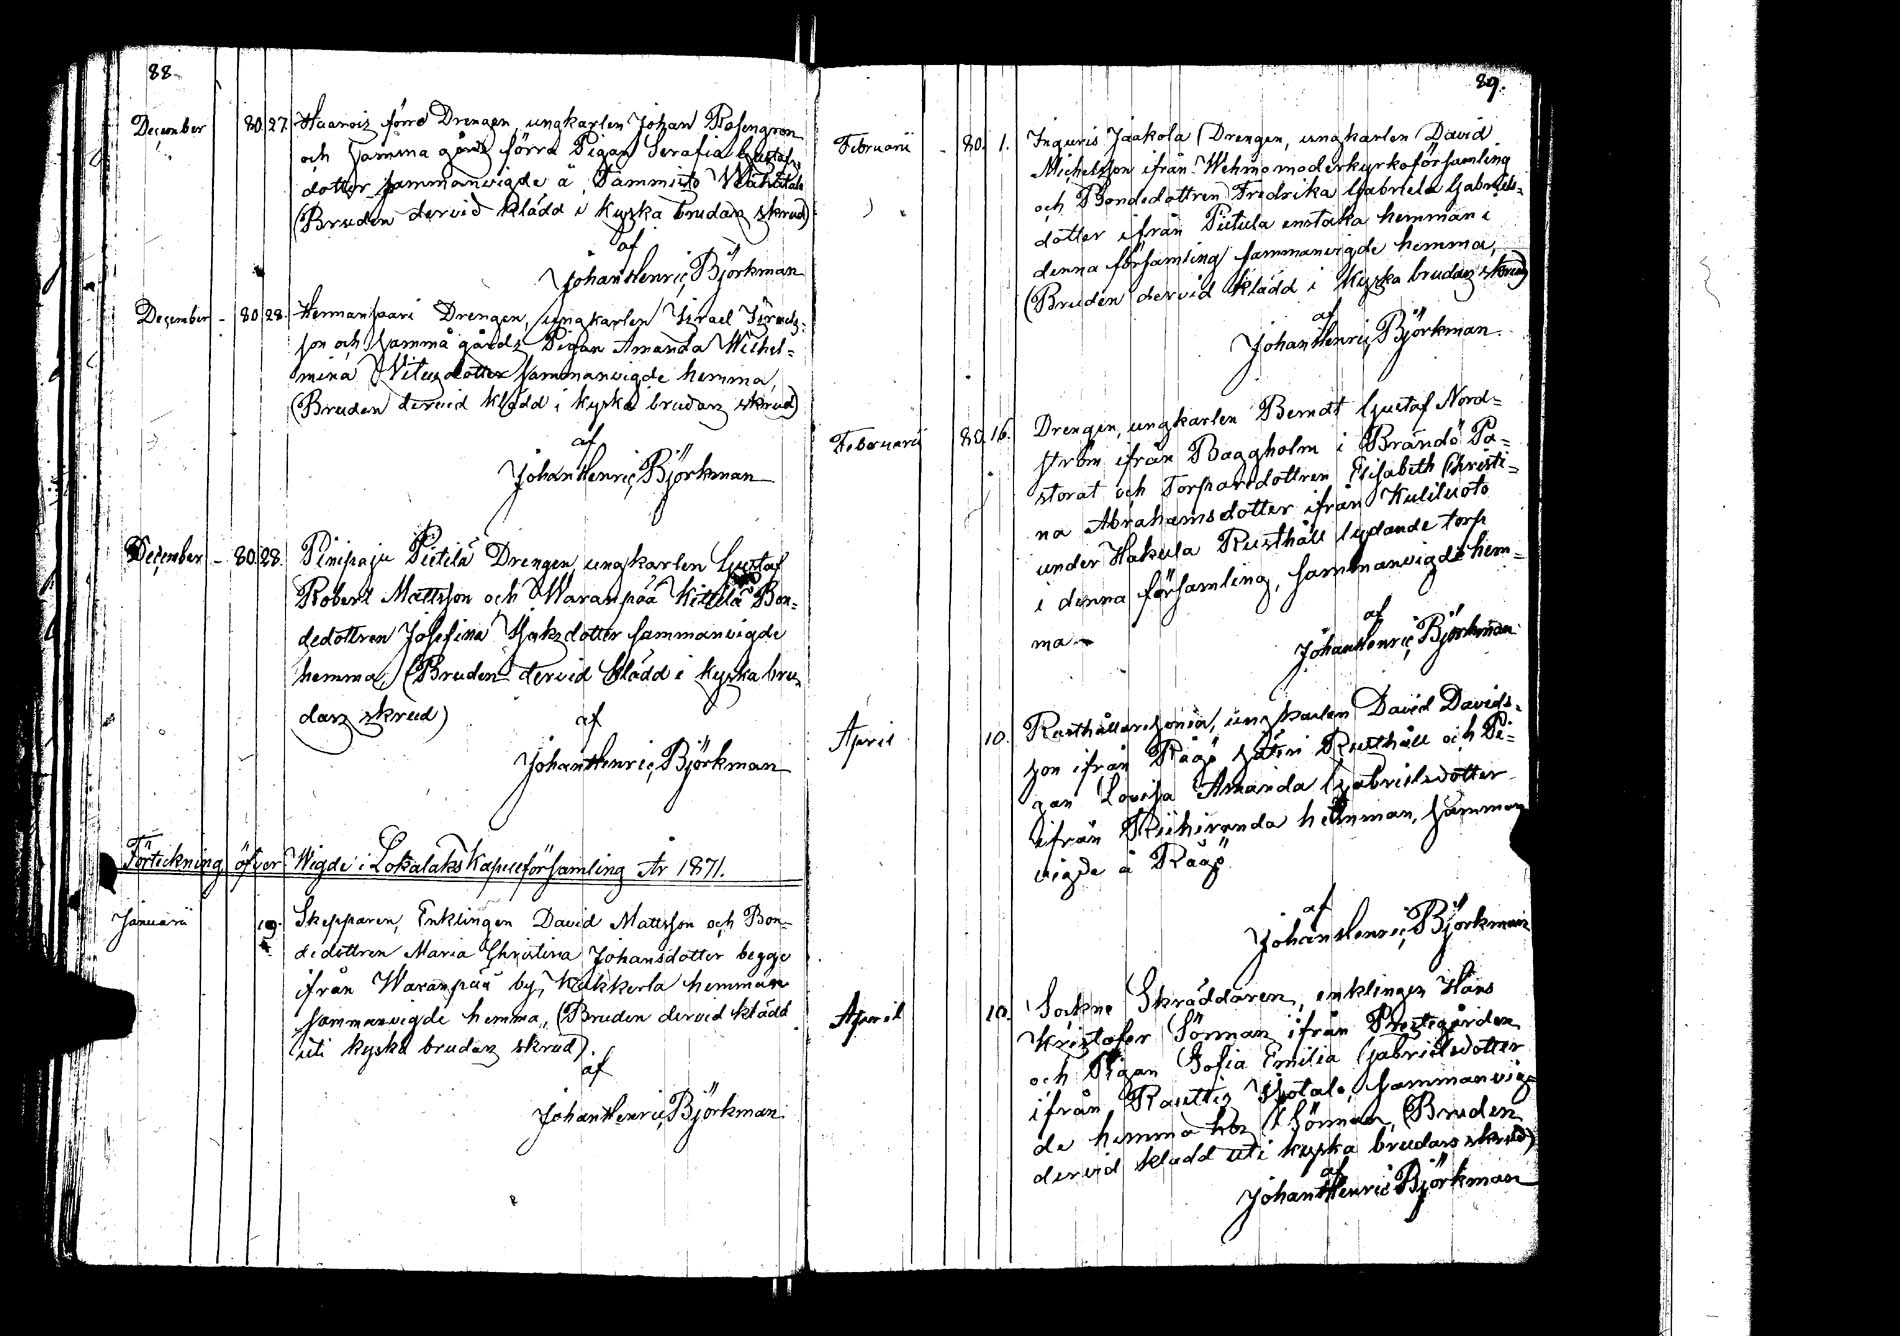 88.
December 80. 27. Haarois förre Drengen, ungkarlen Johan Rosengren
och samma gårds förra Pigan Serafia Gustafs
dotter sammanvigde å Tammisto
(Bruden dervid klädd i kyska brudars skrud)
af
Johan Henric Björkman
December - 80. 28. Hermansaari Drengen, ungkarlen Israel Israels=
son och samma gårds Pigan Amanda Wilhel=
mina Vitusdotter sammanvigde hemma,
(Bruden dervid klädd i kyska brudars skrud)
af
Johan Henric Björkman
December - 80. 28. Pinipaju Pietilä Drengen, ungkarlen Gustaf
Robert Mattsson och Waranpää Kittilä Bon=
dedottren Josefina Isaksdotter sammanvigde
hemma, (Bruden dervid klädd i kyska bru=
dars skrud)
af
Johan Henric Björkman
Förtickning öfver Wigde i Lokalaks Kapellförsamling År 1871.
Januarii 19. Skepparen, Enklingen David Mattsson och Bon=
dedottren Maria Christina Johansdotter begge
ifrån Waranpää by, Kukkerla hemman
sammanvigde hemma, (Bruden dervid klädd
uti kyska brudars skrud).
af
Johan Henric Björkman
89.
Februarii - 80. 1. Inguris Jaakola Drengen, ungkarlen David
Michelsson ifrån Wehmo moderkyrkoförsamling
och Bondedottren Fredrika Gabriela Gabriels=
dotter ifrån Pietula enstaka hemman i
denna församling sammanvigde hemma,
(Bruden dervid klädd i kyska brudars skrud)
af
Johan Henric Björkman.
Februarii 80. 16. Drengen, ungkarlen Berndt Gustaf Nord=
ström ifrån Baggholm i Brändö Pa=
storat och Torparedottren Elisabeth Christi=
na Abrahamsdotter ifrån Kuliluoto
under Hakula Rusthåll lydande torp
i denna församling, sammanvigde hem=
ma
af
Johan Henric Björkman
April 10. Rusthållaresonen, ungkarlen David Davids=
son ifrån Rågö Säteri Rusthåll och Pi=
gan Lovisa Amanda Gabrielsdotter
ifrån Riihiranda hemman, samman
vigde å Rågö
af
Johan Henric Björkman
April 10. Sockne Skräddaren, enklingen Hans
Kristofer Sörman ifrån Prestegården
och Pigan Sofia Emilia Gabrielsdotter
ifrån Rauttis Isotalo, sammanvig=
de hemma hos Sörman, (Bruden
dervid klädd uti kyska brudars skrud)
af
Johan Henric Björkman